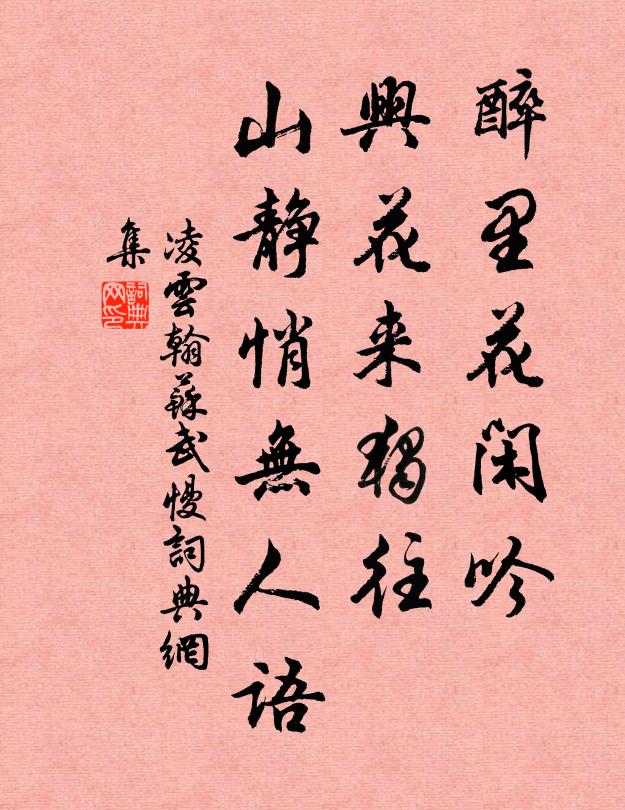 醉里花閑吟
興花来獨往
山静悄無人語
凌雲翰蘇武慢詞典網
集
詞典
网印